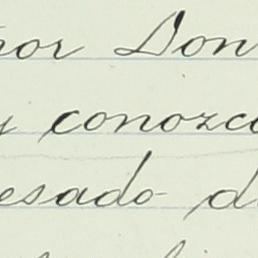 ñor Don
y conozco
esado d